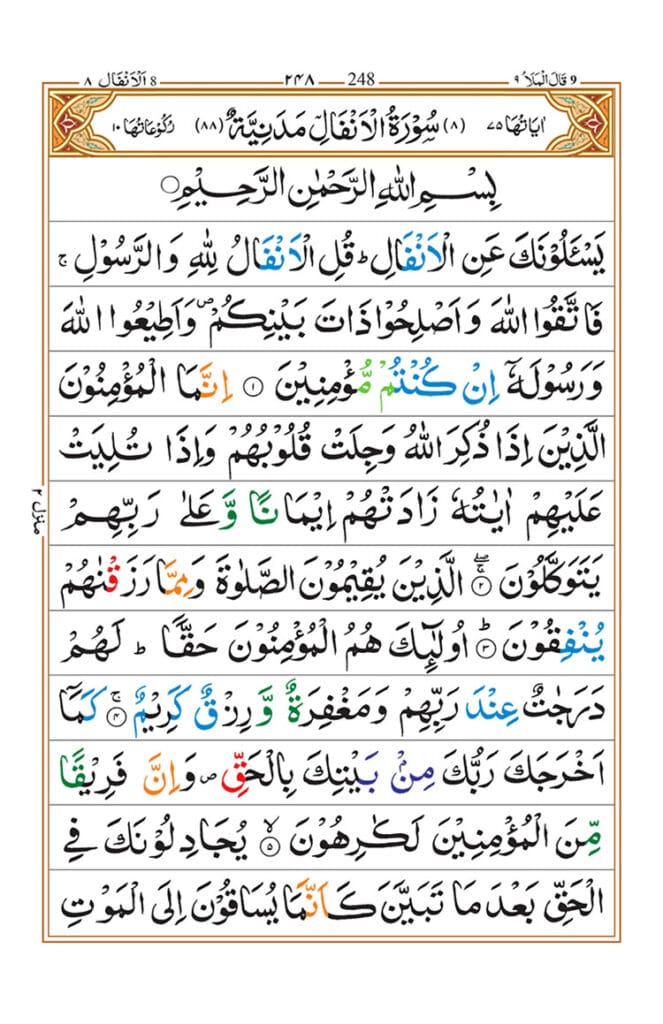 ٩ قَالَ الْمَلَأُ 9 248 ٢٤٨ اَلْاَنْفَال ٨ 8
اٰيَاتُهَا ٧٥ (٨) سُوْرَةُ الْاَنْفَالِ مَدَنِيَّةٌ (٨٨) رُكُوْعَاتُهَا ١٠
بِسْمِ اللّٰهِ الرَّحْمٰنِ الرَّحِيْمِ
يَسْـَٔلُوْنَكَ عَنِ الْاَنْفَالِ ؕ قُلِ الْاَنْفَالُ لِلّٰهِ وَالرَّسُوْلِ ۚ
فَاتَّقُوا اللّٰهَ وَاَصْلِحُوْا ذَاتَ بَيْنِكُمْ ۪ وَاَطِيْعُوا اللّٰهَ
وَرَسُوْلَهٗۤ اِنْ كُنْتُمْ مُّؤْمِنِيْنَ ۝١ اِنَّمَا الْمُؤْمِنُوْنَ
الَّذِيْنَ اِذَا ذُكِرَ اللّٰهُ وَجِلَتْ قُلُوْبُهُمْ وَاِذَا تُلِيَتْ
عَلَيْهِمْ اٰيٰتُهٗ زَادَتْهُمْ اِيْمَانًا وَّعَلٰى رَبِّهِمْ
يَتَوَكَّلُوْنَ ۝٢ الَّذِيْنَ يُقِيْمُوْنَ الصَّلٰوةَ وَمِمَّا رَزَقْنٰهُمْ
يُنْفِقُوْنَ ۝٣ؕ اُولٰٓئِكَ هُمُ الْمُؤْمِنُوْنَ حَقًّا ؕ لَهُمْ
دَرَجٰتٌ عِنْدَ رَبِّهِمْ وَمَغْفِرَةٌ وَّرِزْقٌ كَرِيْمٌ ۝٤ۚ كَمَاۤ
اَخْرَجَكَ رَبُّكَ مِنْۢ بَيْتِكَ بِالْحَقِّ ۪ وَاِنَّ فَرِيْقًا
مِّنَ الْمُؤْمِنِيْنَ لَكٰرِهُوْنَ ۝٥ۙ يُجَادِلُوْنَكَ فِى
الْحَقِّ بَعْدَ مَا تَبَيَّنَ كَاَنَّمَا يُسَاقُوْنَ اِلَى الْمَوْتِ
منزل ٢